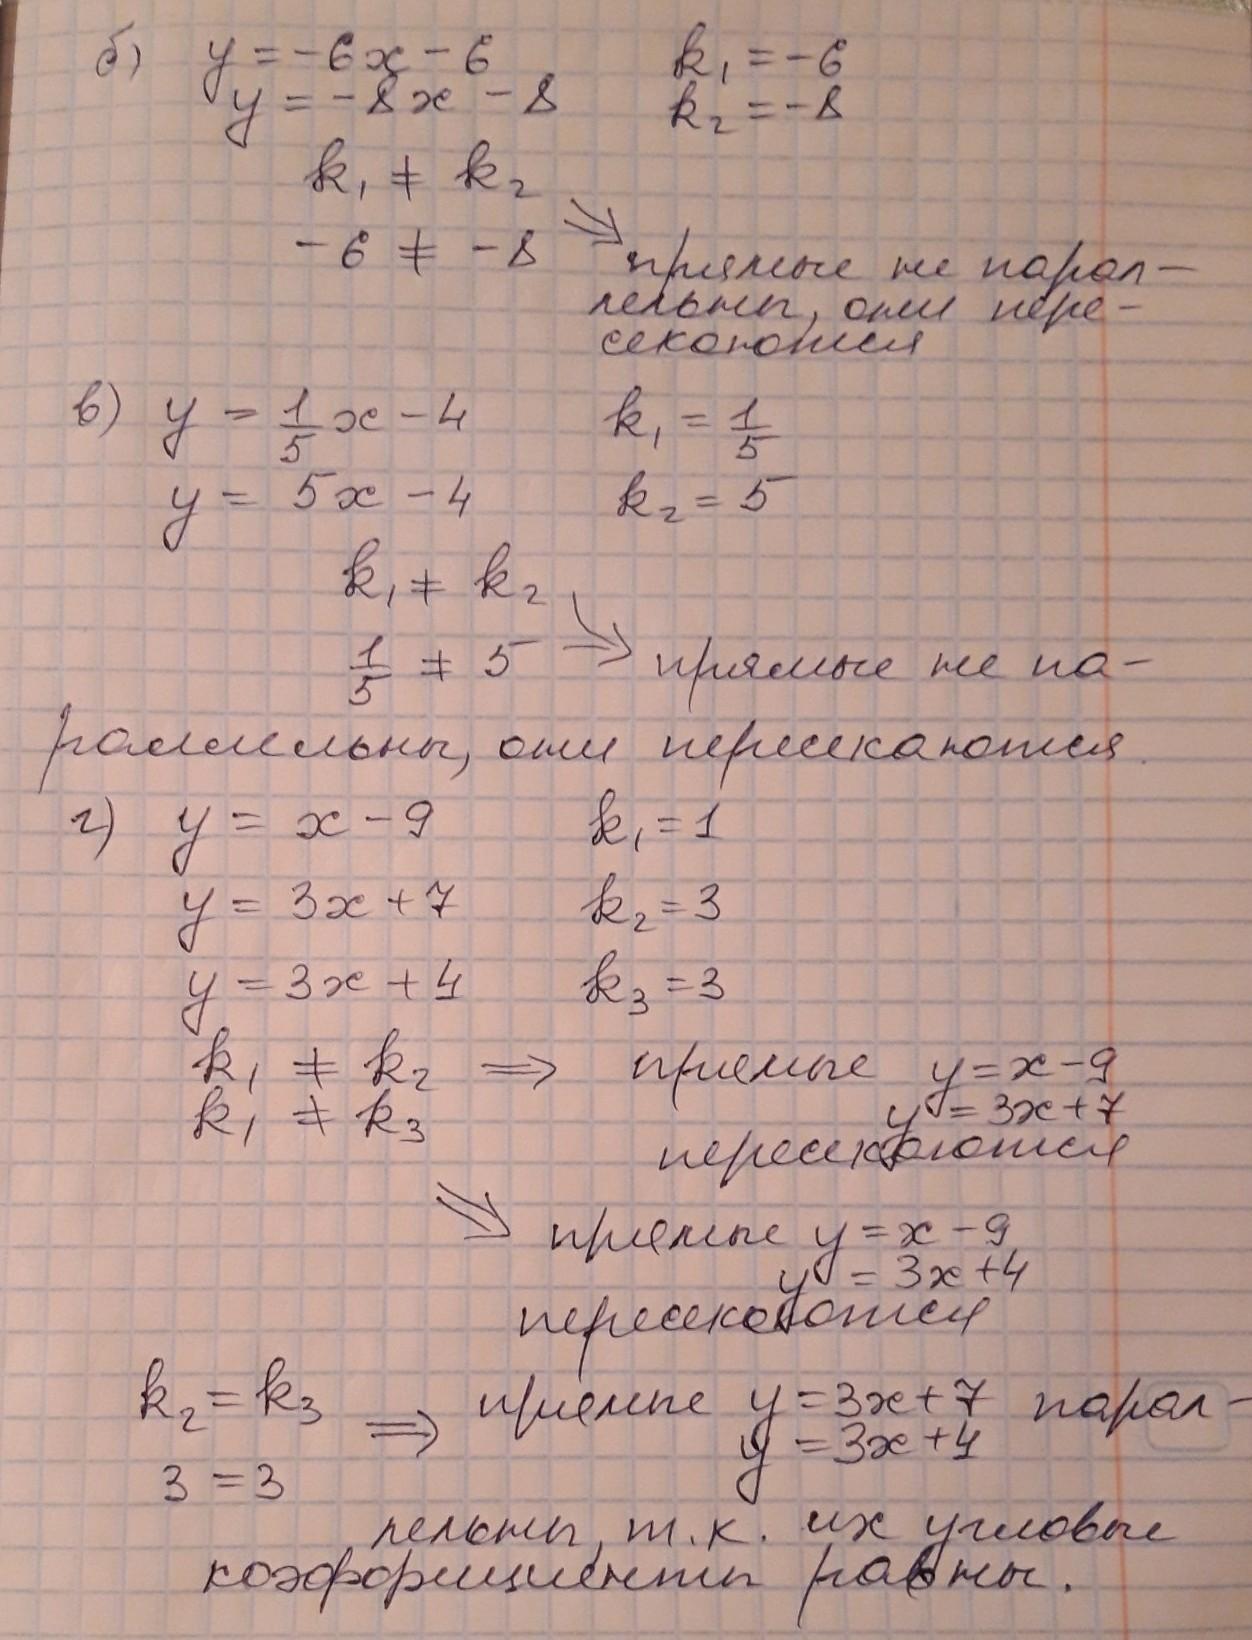 б) y = -6x - 6 k₁ = -6
y = -8x - 8 k₂ = -8
k₁ ≠ k₂
-6 ≠ -8
⇒ прямые не парал-
лельны, они пере-
секаются
в) y = 1/5 x - 4 k₁ = 1/5
y = 5x - 4 k₂ = 5
k₁ ≠ k₂
1/5 ≠ 5 ⇒ прямые не па-
раллельны, они пересекаются.
г) y = x - 9 k₁ = 1
y = 3x + 7 k₂ = 3
y = 3x + 4 k₃ = 3
k₁ ≠ k₂ ⇒ прямые y = x - 9
k₁ ≠ k₃ y = 3x + 7
пересекаются
⇒ прямые y = x - 9
y = 3x + 4
пересекаются
k₂ = k₃ ⇒ прямые y = 3x + 7 парал-
3 = 3 y = 3x + 4
лельны, т.к. их угловые
коэффициенты равны.